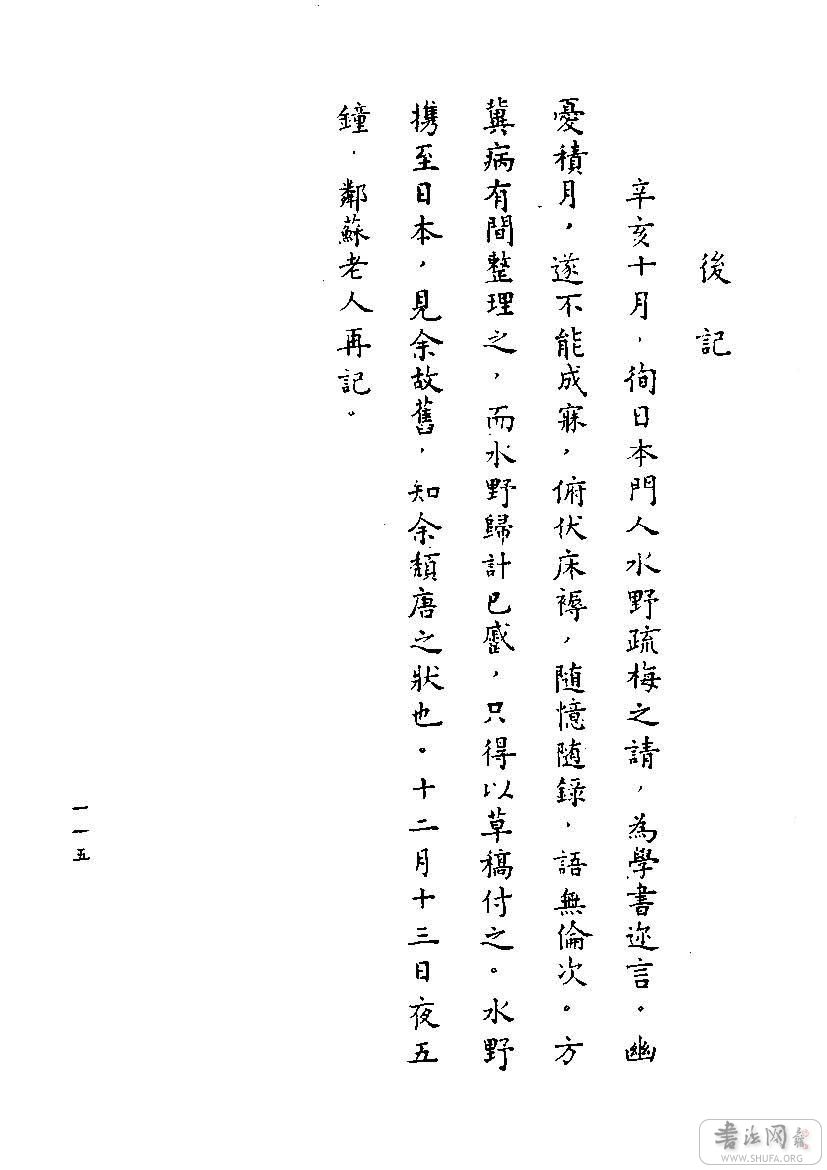 後記
辛亥十月，徇日本門人水野疏梅之請，為學書迩言。幽
憂積月，遂不能成寐，俯伏床褥，随憶随錄，語無倫次。方
冀病有間整理之，而水野歸計已蹙，只得以草稿付之。水野
携至日本，見余故舊，知余頹唐之狀也。十二月十三日夜五
鐘，鄰蘇老人再記。
一一五
書法网
WWW.SHUFA.ORG